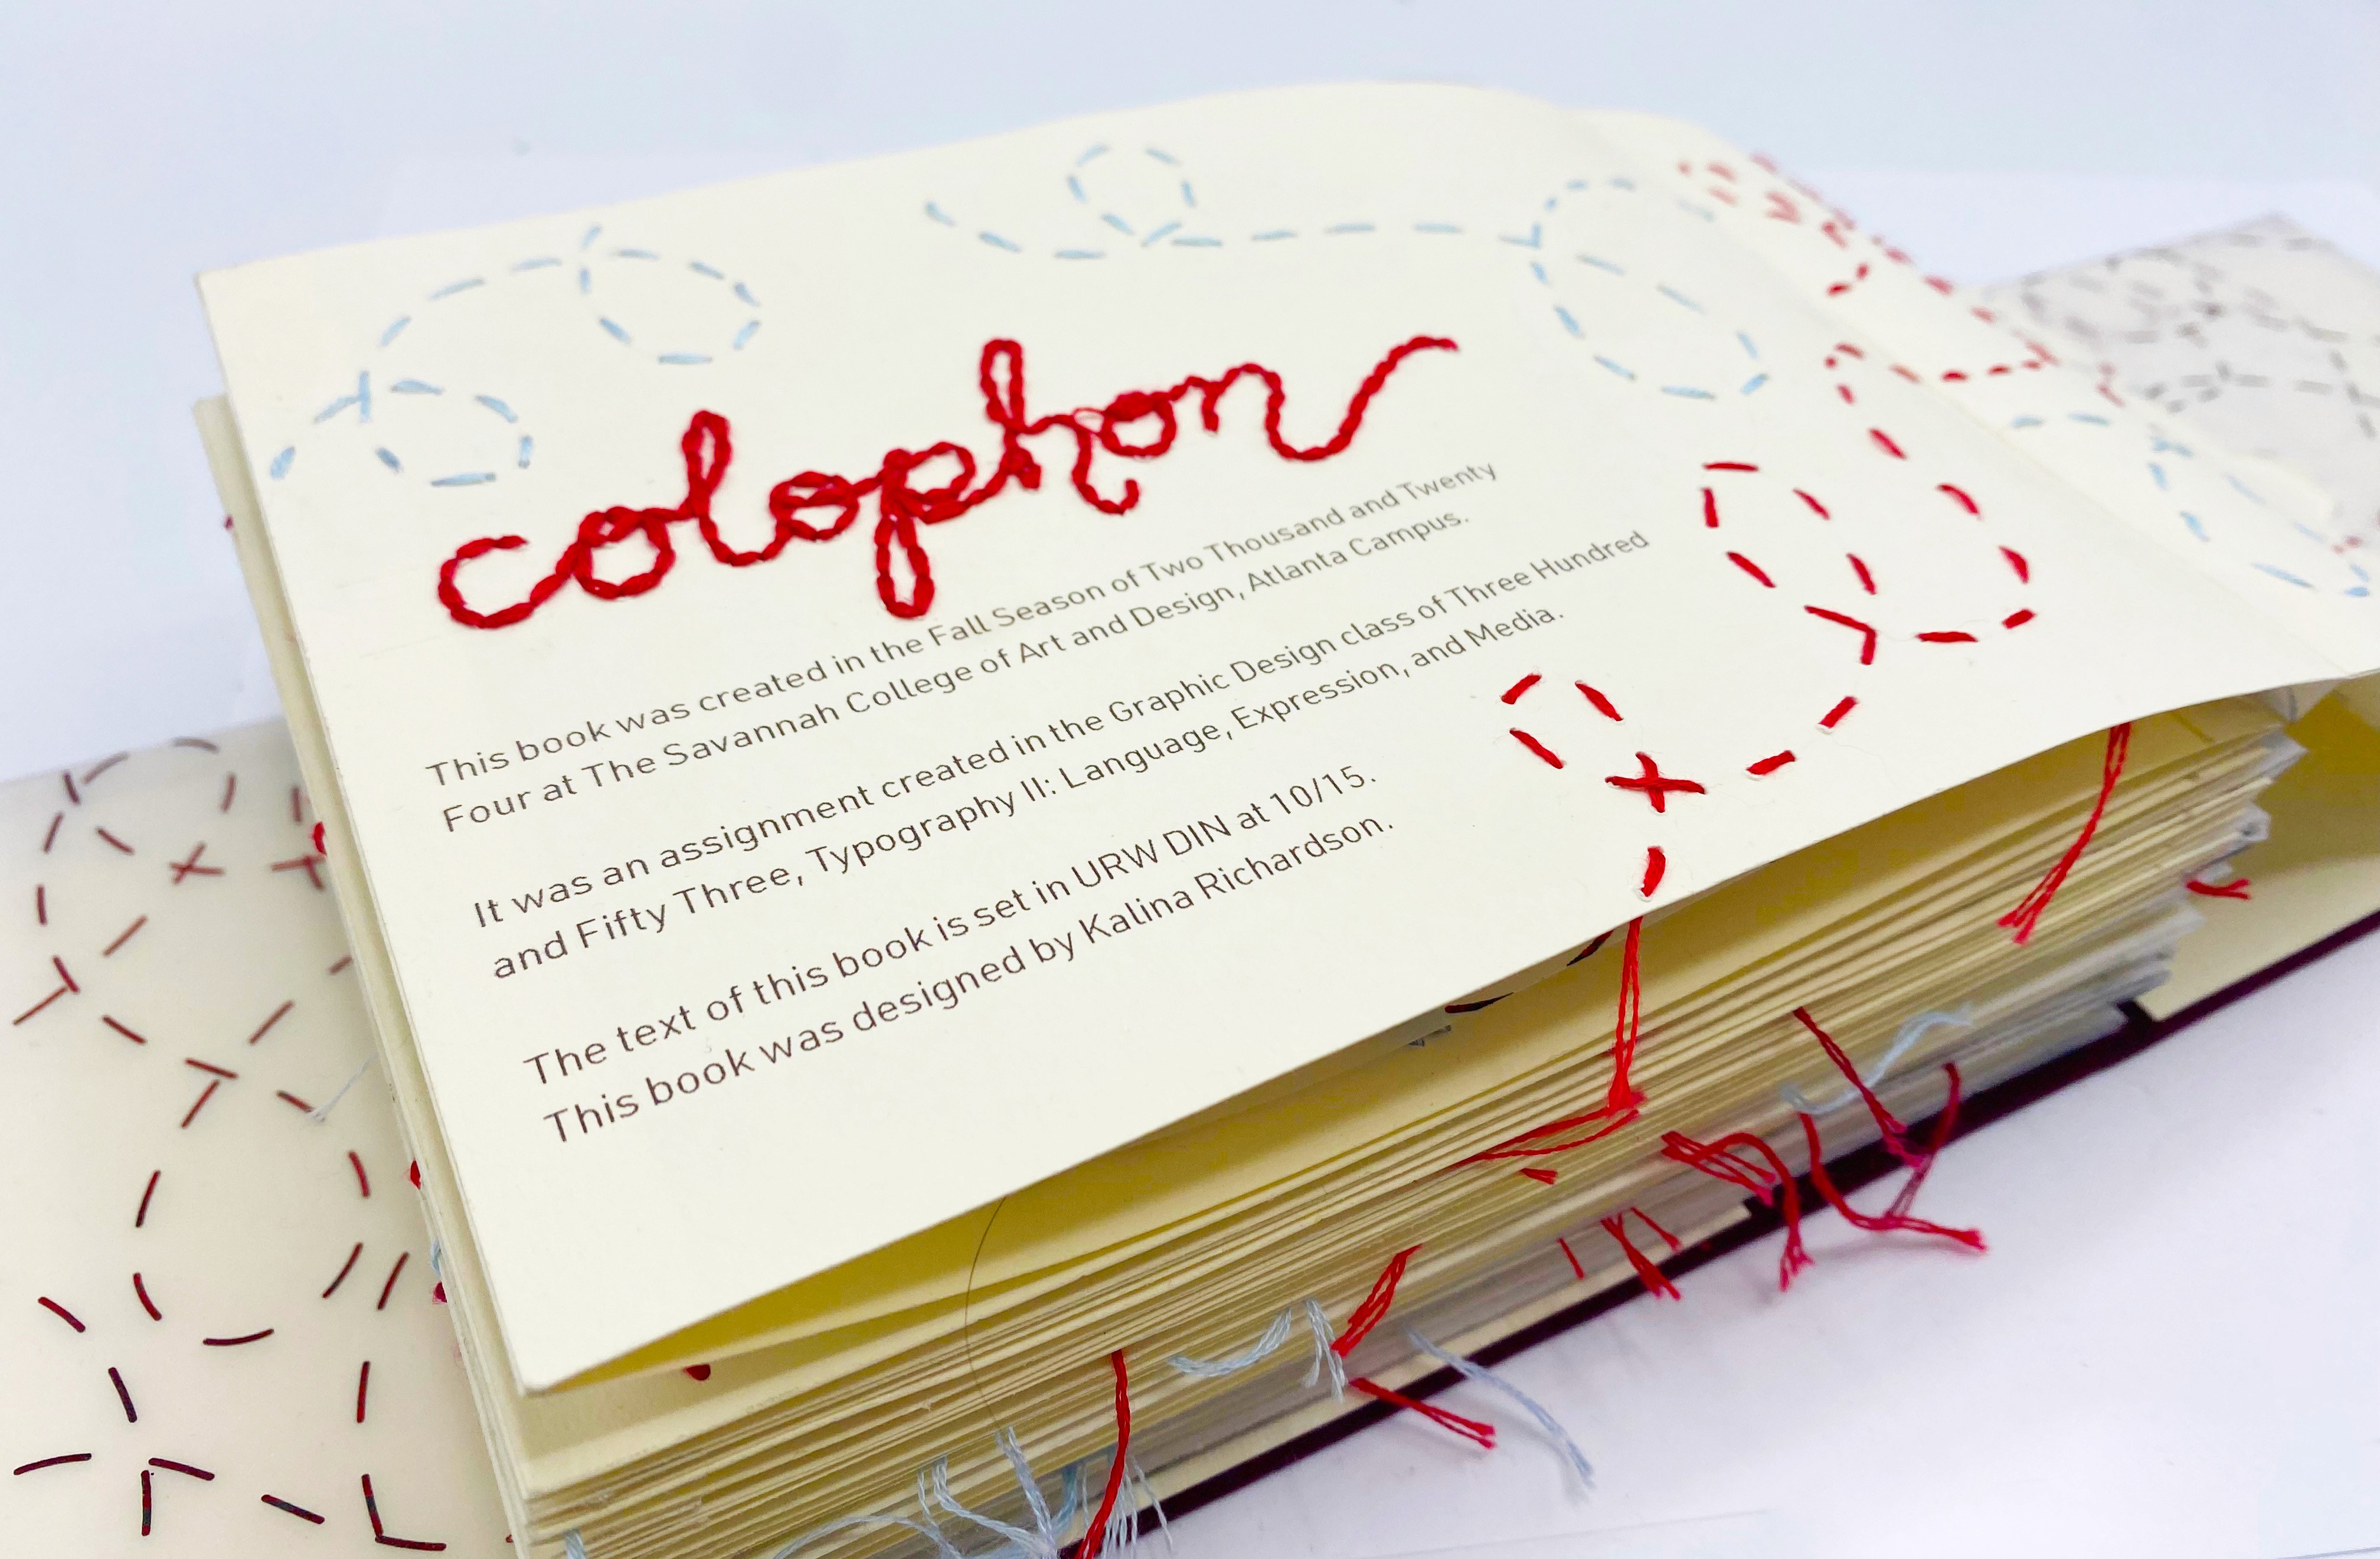 colophon
This book was created in the Fall Season of Two Thousand and Twenty
Four at The Savannah College of Art and Design, Atlanta Campus.
It was an assignment created in the Graphic Design class of Three Hundred
and Fifty Three, Typography II: Language, Expression, and Media.
The text of this book is set in URW DIN at 10/15.
This book was designed by Kalina Richardson.